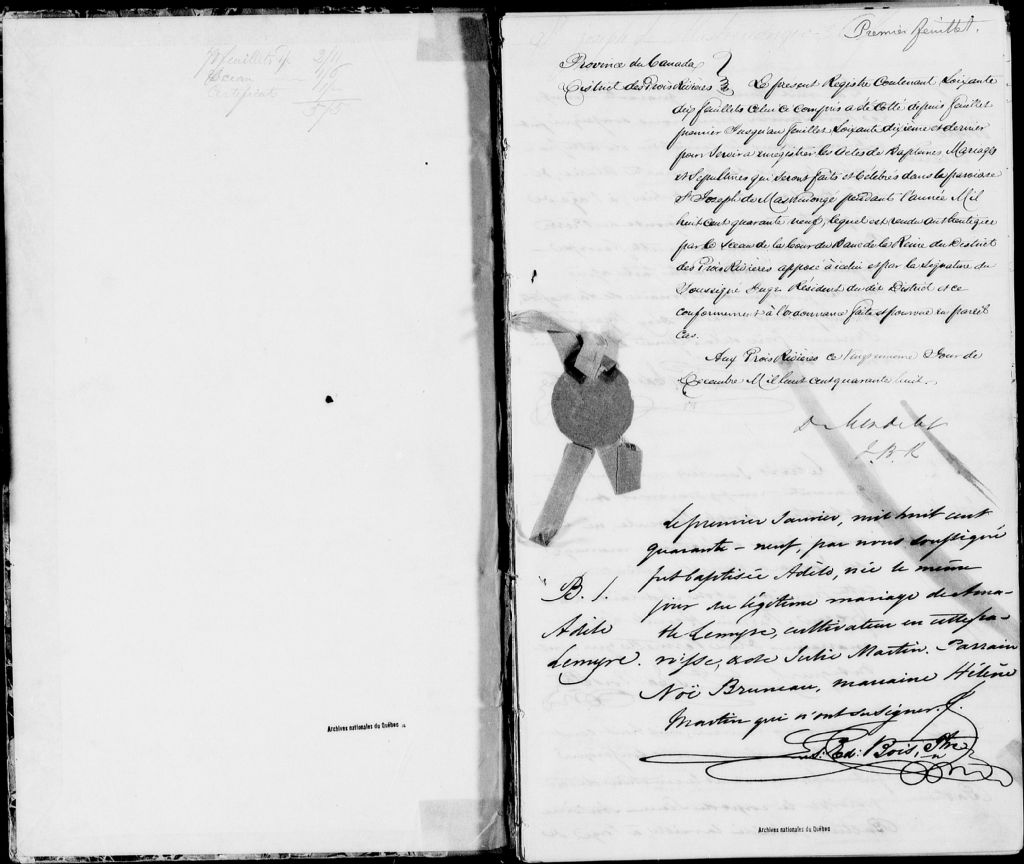 70 feuillets 2/11
Sceau 1/6
Certificat 1/-
5/5
Archives nationales du Québec
Premier feuillet.
Province du Canada
District des Trois Rivières } Le present Registre Contenant Soixante
dix feuillets celui ci compris a été Cotté depuis feuillet
premier Jusqu'au feuillet Soixante dixieme et dernier
pour servir a enrégistrer les Actes de Baptêmes Mariages
et Sepultures qui seront faits et Célébrés dans la paroisse
St Joseph de Maskinongé pendant l'année Mil
huit Cent quarante neuf, lequel est rendu authentique
par le Sceau de la Cour du Banc de la Reine du District
des Trois Rivières apposé à icelui et par la Signature du
Soussigné Juge Résident du dit District et ce
conformement à l'ordonnance faite et pourvue en pareil
Cas.
Aux Trois Rivieres ce Jour de
Decembre Mil huit Cent quarante huit.
D. Mondelet
J. B. R
Le premier Janvier, mil huit cent
quarante-neuf, par nous soussigné
B. 1. fut baptisée Adèle, née le même
jour du légitime mariage de Ama-
Adèle ble Lemyre, cultivateur en cette pa-
Lemyre. roisse, & de Julie Martin. Parrain
Noë Bruneau, marraine Hélène
Martin qui n'ont su signer.
Ls. Ed: Bois, Ptre
Archives nationales du Québec